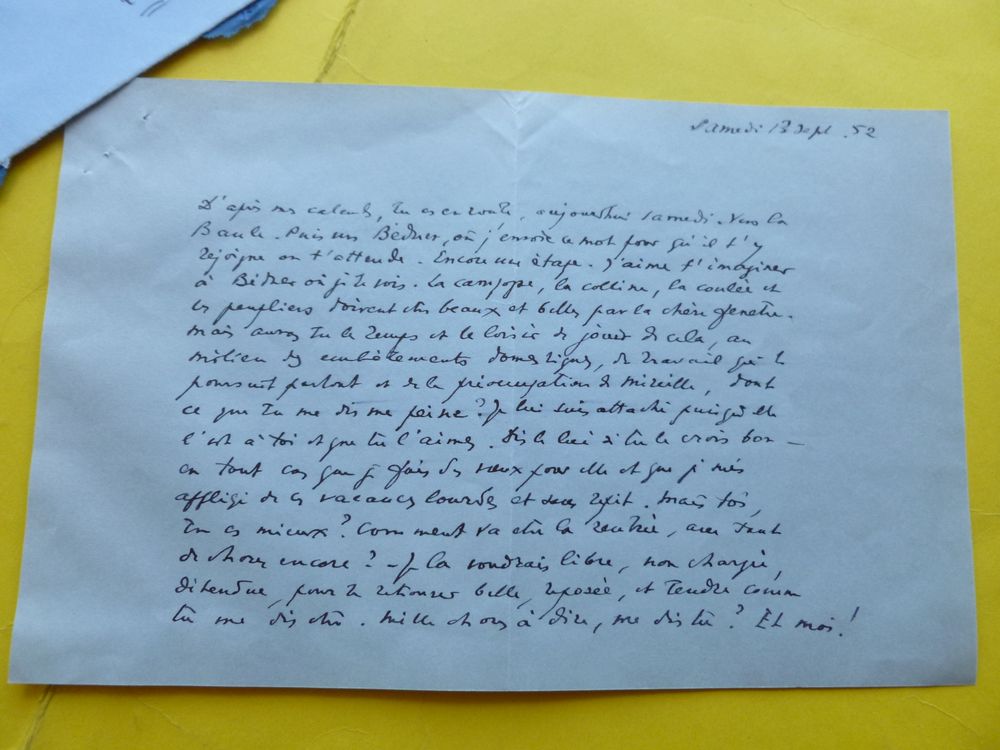 Samedi 13 Sept. 52
D'après mes calculs, tu es en route, aujourd'hui samedi. Vers la
Baule. Puis vers Béduer, où j'envoie ce mot pour qu'il t'y
rejoigne ou t'attende. Encore une étape. J'aime t'imaginer
à Béduer où je te vois. La campagne, la colline, la coulée et
les peupliers doivent être beaux et belles par la chère fenêtre.
mais auras tu le temps et le loisir de jouir de cela, au
milieu des embêtements domestiques, du travail qui te
poursuit partout et de la préoccupation de Mireille, dont
ce que tu me dis me peine? Je lui suis attaché puisqu'elle
l'est à toi et que tu l'aimes. Dis le lui si tu le crois bon –
en tout cas que je fais des vœux pour elle et que je suis
affligé de ces vacances lourdes et sans répit. mais toi,
Tu es mieux? Comment va être la rentrée, avec tant
de choses encore? – Je la voudrais libre, non chargée,
détendue, pour te retrouver belle, reposée, et tendre comme
tu me dis être. mille choses à dire, me dis tu? Et moi!